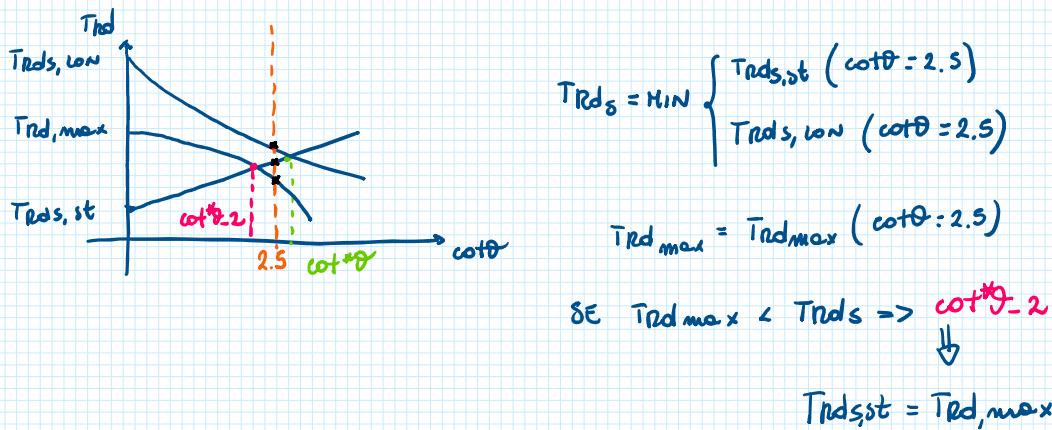 TRd
TRds, LON
TRd, max
TRds, st
cot*θ_2
2.5
cot*θ
cotθ
TRds = MIN { TRds,st (cotθ = 2.5)
TRds, LON (cotθ = 2.5)
TRd max = TRd max (cotθ = 2.5)
SE TRd max < TRds => cot*θ_2
⇓
TRds,st = TRd, max